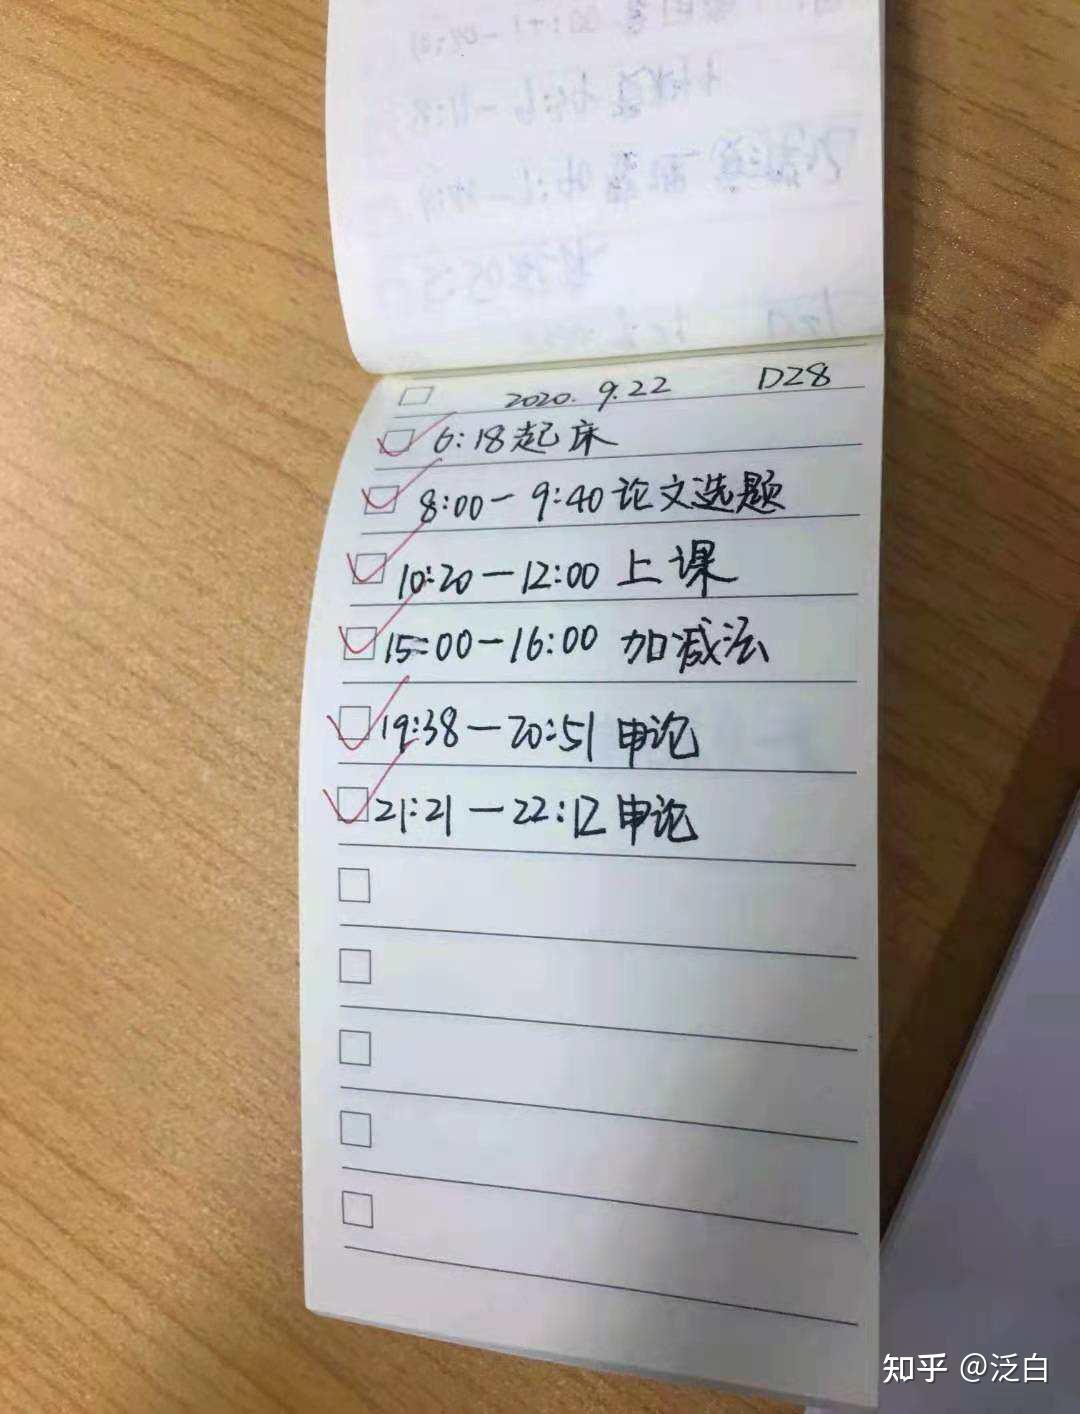 2020. 9.22 D28
6:18起床
8:00-9:40论文选题
10:20-12:00 上课
15:00-16:00 加减法
19:38-20:51 申论
21:21-22:12 申论
知乎 @泛白